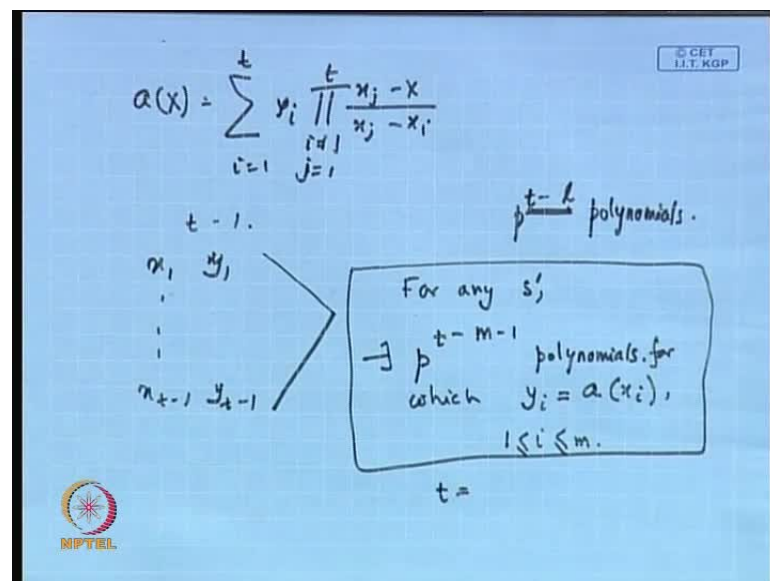 © CET
I.I.T. KGP
a(x) = t ∑ i=1 y_i t ∏ i≠j j=1 x_j - x / x_j - x_i
t - 1.
p^{t-l} polynomials.
x_1 y_1
x_{t-1} y_{t-1}
For any s',
∃ p^{t-m-1} polynomials for
which y_i = a(x_i),
1 ≤ i ≤ m.
t =
NPTEL